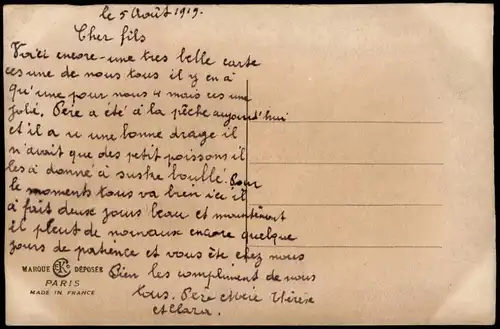 le 5 Août 1919.
Cher fils
Voici encore-une tres belle carte
ces une de nous tous il y en à
qu'une pour nous 4 mais ces une
jolié. Pére a été á la pêche aujourd'hui
et il a u une bonne drage il
n'avait que des petit poissons il
les á donné à boullé. Pour
le moments tous va bien ici il
á fait deux jours beau et maintenant
il pleut de nouveaux encore quelque
jours de patience et vous éte chez nous
Bien les compliment de nous
tous. Pére Mére Thérése
et Clara.
MARQUE DÉPOSÉE
PARIS
MADE IN FRANCE